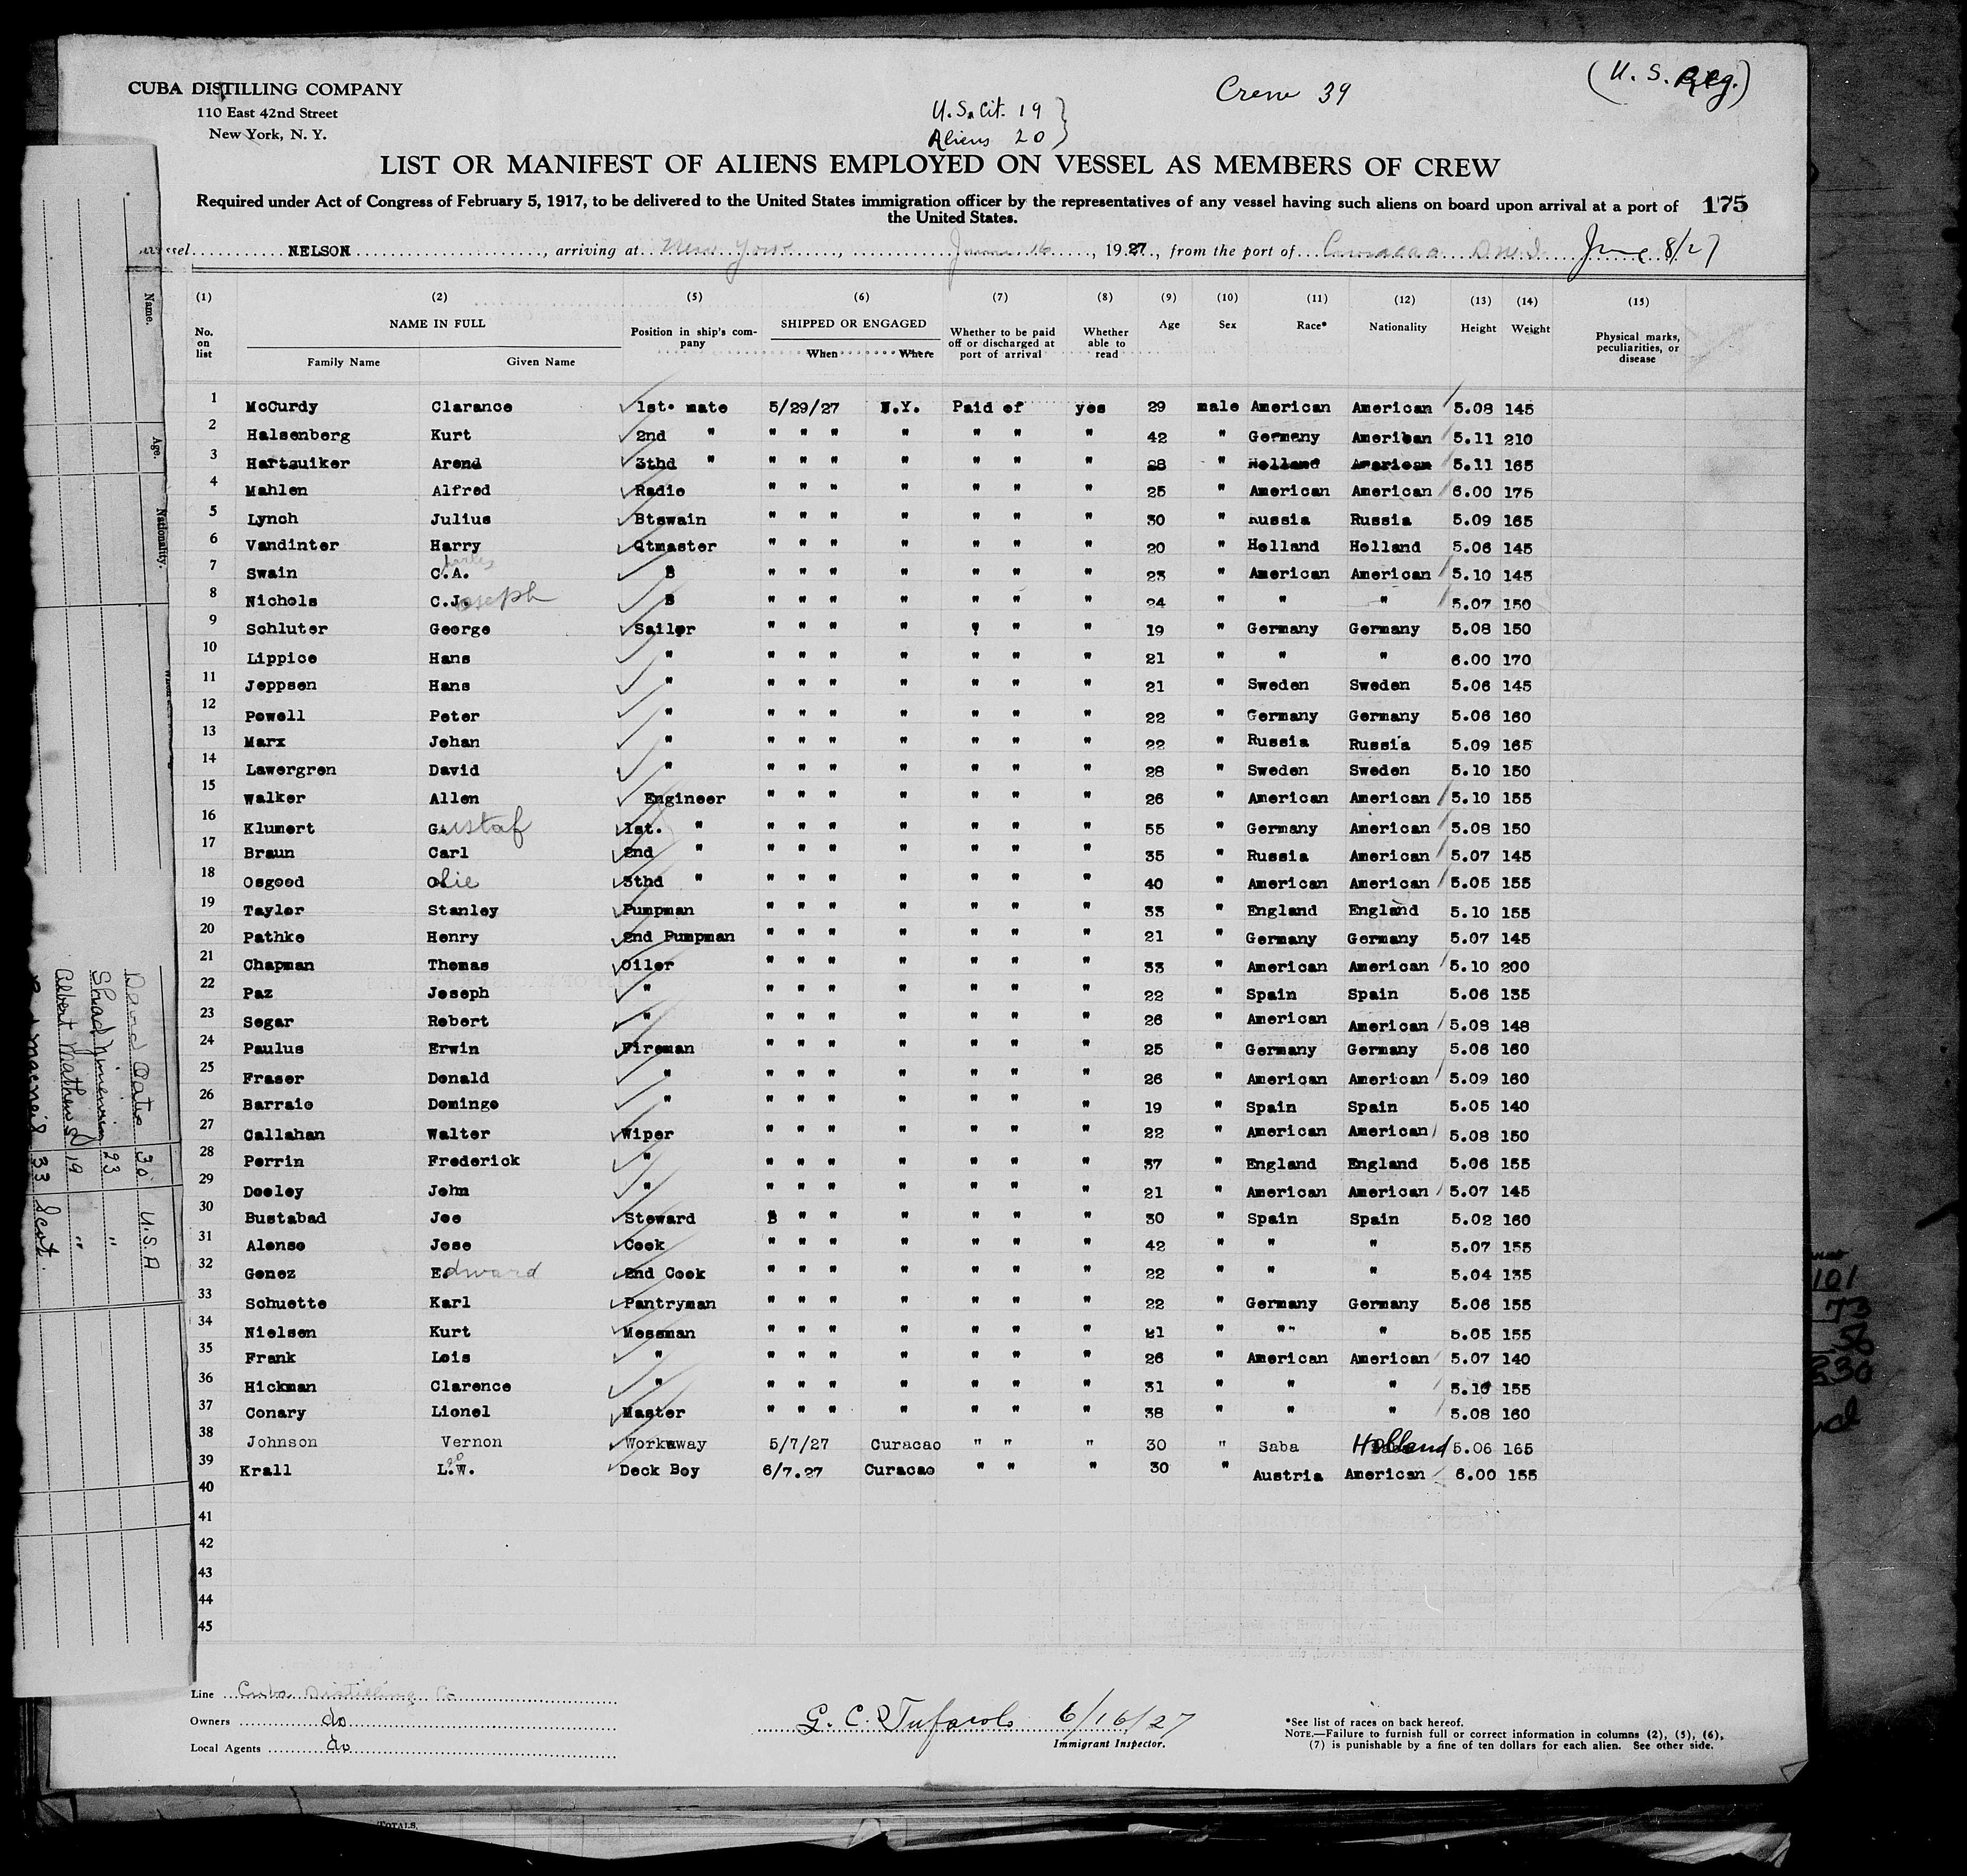 CUBA DISTILLING COMPANY
110 East 42nd Street
New York, N. Y.
Crew 39
(U. S. Reg.)
U.S. Cit. 19
Aliens 20
LIST OR MANIFEST OF ALIENS EMPLOYED ON VESSEL AS MEMBERS OF CREW
Required under Act of Congress of February 5, 1917, to be delivered to the United States immigration officer by the representatives of any vessel having such aliens on board upon arrival at a port of 175
the United States.
NELSON, arriving at New York, June 16, 1927, from the port of Curacao D.W.I. June 8/27
(1) (2) (5) (6) (7) (8) (9) (10) (11) (12) (13) (14) (15)
No. on list NAME IN FULL Family Name Given Name Position in ship's company SHIPPED OR ENGAGED When Where Whether to be paid off or discharged at port of arrival Whether able to read Age Sex Race* Nationality Height Weight Physical marks, peculiarities, or disease
1 McCurdy Clarance 1st. mate 5/29/27 N.Y. Paid of yes 29 male American American 5.08 145
2 Halsenberg Kurt 2nd " " " " " " " " 42 " Germany American 5.11 210
3 Hartsuiker Arend 3thd " " " " " " " " 28 " Holland American 5.11 165
4 Mahlen Alfred Radio " " " " " " " 25 " American American 6.00 175
5 Lynch Julius Btswain " " " " " " " 30 " Russia Russia 5.09 165
6 Vandinter Harry Qtmaster " " " " " " " 20 " Holland Holland 5.06 145
7 Swain C.A. harles B " " " " " " " 23 " American American 5.10 145
8 Nichols C.Joseph B " " " " " " " 24 " " " 5.07 150
9 Schluter George Sailor " " " " " " " 19 " Germany Germany 5.08 150
10 Lippice Hans " " " " " " " " 21 " " " 6.00 170
11 Jeppsen Hans " " " " " " " " 21 " Sweden Sweden 5.06 145
12 Powell Peter " " " " " " " " 22 " Germany Germany 5.06 160
13 Marx Johan " " " " " " " " 22 " Russia Russia 5.09 165
14 Lawergren David " " " " " " " " 28 " Sweden Sweden 5.10 150
15 Walker Allen Engineer " " " " " " " 26 " American American 5.10 155
16 Klumert Gustaf 1st. " " " " " " " " 55 " Germany American 5.08 150
17 Braun Carl 2nd " " " " " " " " 35 " Russia American 5.07 145
18 Osgood Olie 3thd " " " " " " " " 40 " American American 5.05 155
19 Taylor Stanley Pumpman " " " " " " " 33 " England England 5.10 155
20 Pathke Henry 2nd Pumpman " " " " " " " 21 " Germany Germany 5.07 145
21 Chapman Thomas Oiler " " " " " " " 33 " American American 5.10 200
22 Paz Joseph " " " " " " " " 22 " Spain Spain 5.06 135
23 Segar Robert " " " " " " " " 26 " American American 5.08 148
24 Paulus Erwin Fireman " " " " " " " 25 " Germany Germany 5.06 160
25 Fraser Donald " " " " " " " " 26 " American American 5.09 160
26 Barraio Domingo " " " " " " " " 19 " Spain Spain 5.05 140
27 Callahan Walter Wiper " " " " " " " 22 " American American 5.08 150
28 Perrin Frederick " " " " " " " " 37 " England England 5.06 155
29 Deeley John " " " " " " " " 21 " American American 5.07 145
30 Bustabad Joe Steward " " " " " " 30 " Spain Spain 5.02 160
31 Alonso Jose Cook " " " " " " " 42 " " " 5.07 155
32 Genez Edward 2nd Cook " " " " " " " 22 " " " 5.04 135
33 Schuette Karl Pantryman " " " " " " " 22 " Germany Germany 5.06 155
34 Nielsen Kurt Messman " " " " " " " 21 " " " 5.05 155
35 Frank Lois " " " " " " " " 26 " American American 5.07 140
36 Hickman Clarence " " " " " " " " 31 " " " 5.10 155
37 Conary Lionel Master " " " " " " " 38 " " " 5.08 160
38 Johnson Vernon Workaway 5/7/27 Curacao " " " 30 " Saba Holland 5.06 165
39 Krall L.W. Deck Boy 6/7.27 Curacao " " " 30 " Austria American 6.00 155
40
41
42
43
44
45
Line Cuba Distilling Co
Owners do
Local Agents do
6/16/27
Immigrant Inspector.
*See list of races on back hereof.
NOTE.—Failure to furnish full or correct information in columns (2), (5), (6),
(7) is punishable by a fine of ten dollars for each alien. See other side.
Name.
Age.
Nationality.
30 U.S.A
23 "
Albert Mathews 19 "
33 Scot.
101
73
56
230
TOTALS.